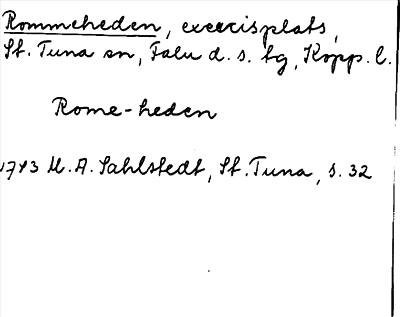 Rommeheden, exercisplats,
St. Tuna sn, Falu d. s. tg, Kopp. l.
Rome-heden
1743 M. A. Sahlstedt, St. Tuna, s. 32